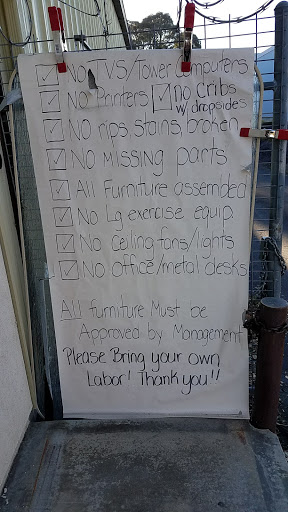 ☑ No TVS/Tower Computers
☑ No Printers ☑ No Cribs
w/dropsides
☑ No rips, stains, broken
☑ No Missing parts
☑ All Furniture assembled
☑ No Lg exercise equip.
☑ No Ceiling fans/lights
☑ No Office/metal desks
All furniture Must be
Approved by Management
Please Bring your own
Labor! Thank you!!